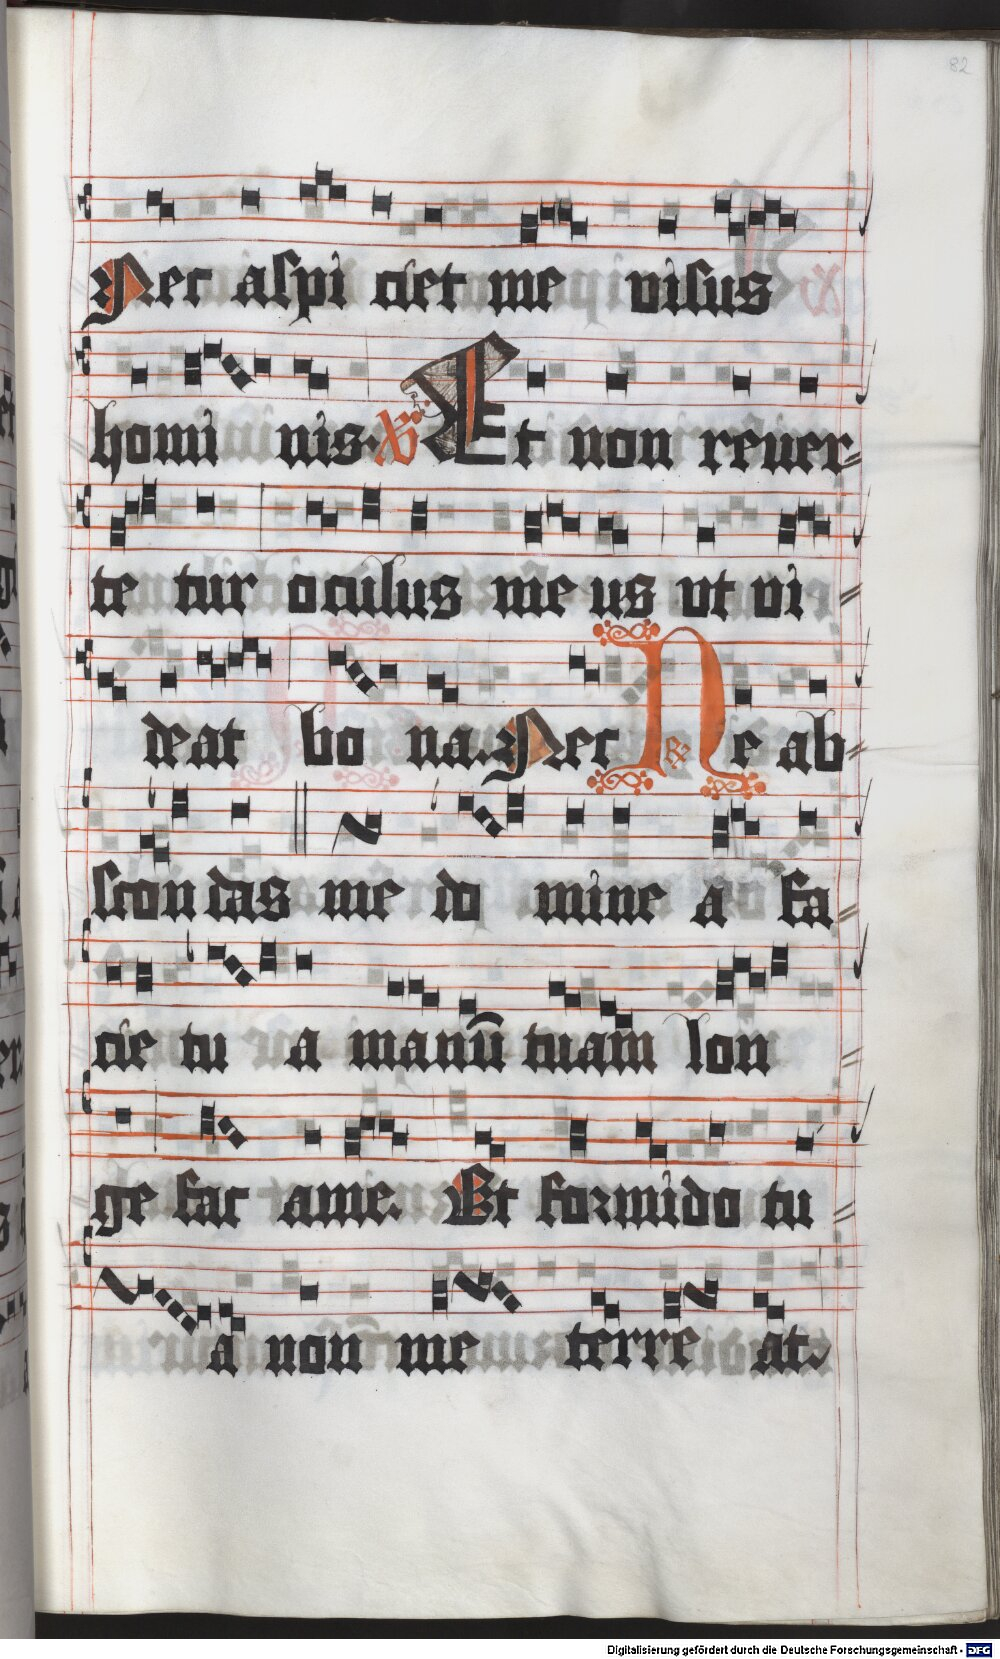 82
Nec aspi ciet me visus
homi nis. ℣ Et non rever=
te tur oculus me us vt vi
deat bo na. Nec ℟ Ne ab=
scon das me do mine a fa
cie tu a manū tuam lon
ge fac a me. Et formido tu
a non me terre at.
Digitalisierung gefördert durch die Deutsche Forschungsgemeinschaft - DFG